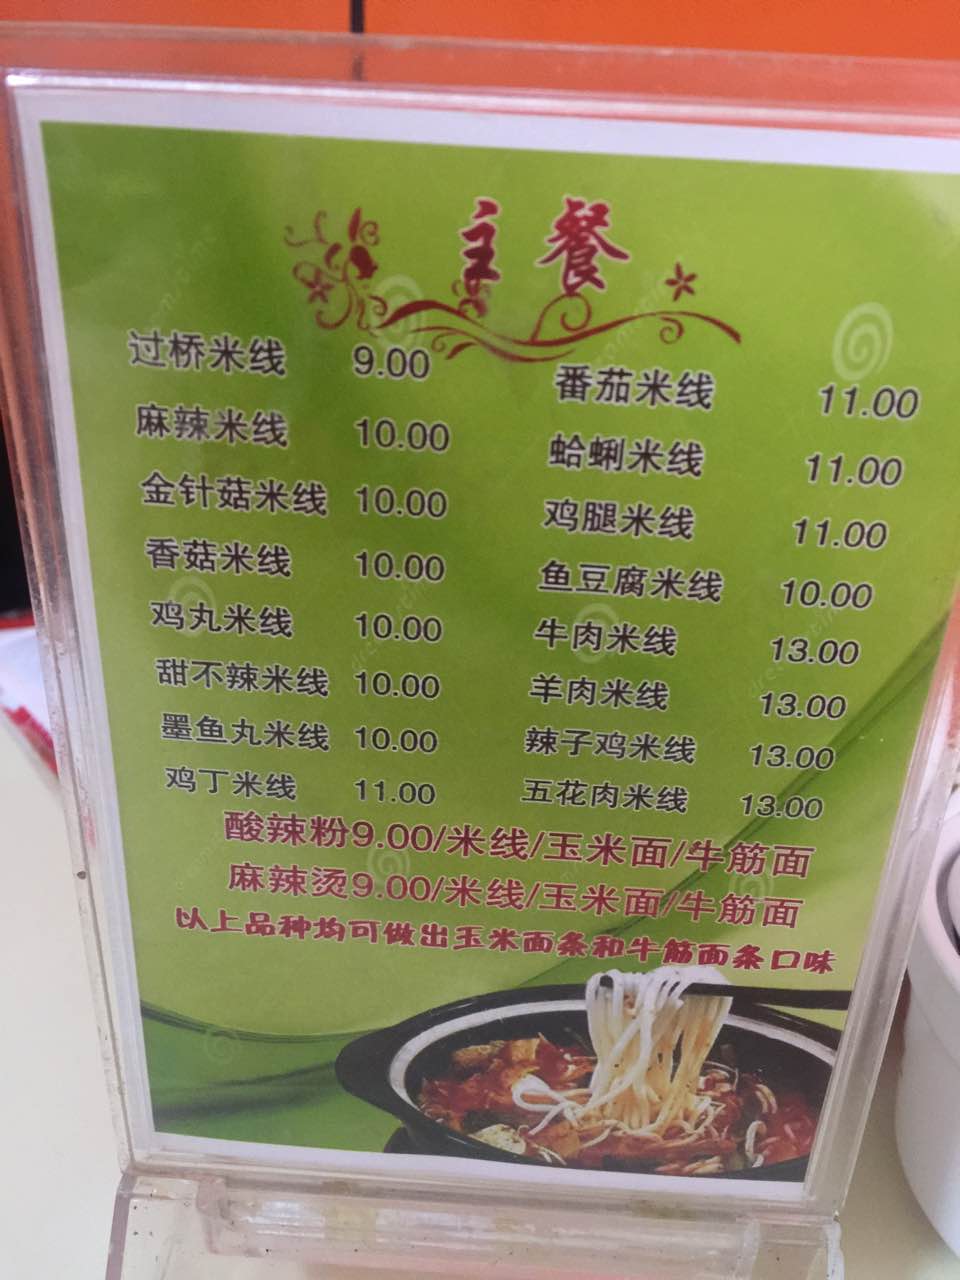 主餐
过桥米线 9.00
麻辣米线 10.00
金针菇米线 10.00
香菇米线 10.00
鸡丸米线 10.00
甜不辣米线 10.00
墨鱼丸米线 10.00
鸡丁米线 11.00
番茄米线 11.00
蛤蜊米线 11.00
鸡腿米线 11.00
鱼豆腐米线 10.00
牛肉米线 13.00
羊肉米线 13.00
辣子鸡米线 13.00
五花肉米线 13.00
酸辣粉9.00/米线/玉米面/牛筋面
麻辣烫9.00/米线/玉米面/牛筋面
以上品种均可做出玉米面条和牛筋面条口味